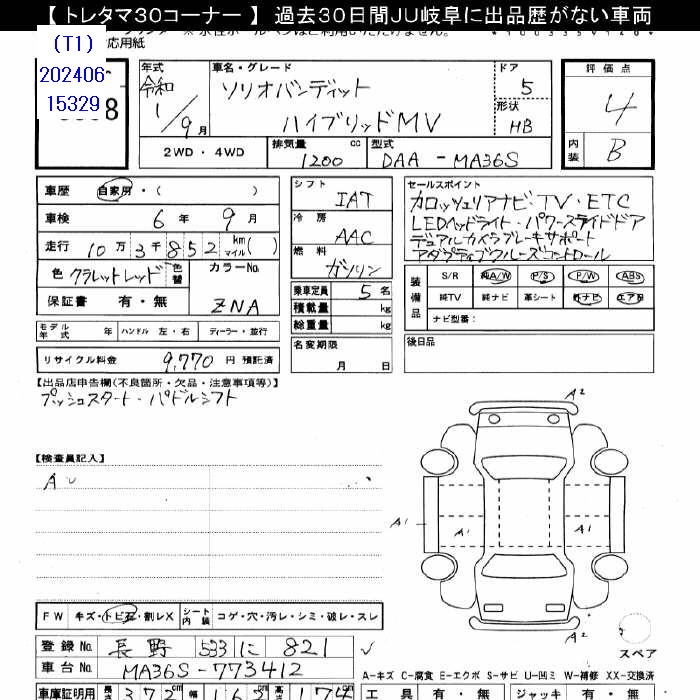 【 トレタマ30コーナー 】 過去30日間JU岐阜に出品歴がない車両
応用紙
(T1)
202406
15329
8
年式 車名・グレード ドア 評価点
令和 ソリオバンディット 5 4
1/9月 ハイブリッドMV 形状 HB
2WD ・ 4WD 排気量 1200 cc 型式 DAA - MA36S 内装 B
車歴 自家用・( )
車検 6 年 9 月
走行 10 万 3 千 8 5 2 km マイル( )
色 クラレットレッド 色替 カラーNo.
保証書 有・無 ZNA
シフト IAT
冷房 AAC
燃料 ガソリン
乗車定員 5 名
積載量 kg
総重量 kg
セールスポイント
カロッツェリアナビ・TV・ETC
LEDヘッドライト・パワースライドドア
デュアルカメラブレーキサポート
アダプティブクルーズコントロール
装備品 S/R 純A/W P/S P/W ABS
純TV 純ナビ 革シート 外ナビ エアB
ナビ型番：
モデル年式 年 ハンドル 左・右 ディーラー・並行
名変期限 月 日
後日品
リサイクル料金 9,770 円 預託済
【出品店申告欄(不良箇所・欠品・注意事項等)】
プッシュスタート・パドルシフト
【検査員記入】
A
A2
A1 A1 A1
A2
スペア
FW キズ・トビ石・割レX シート内装 コゲ・穴・汚レ・シミ・破レ・スレ
登録No. 長野 533 に 821
車台No. MA36S-773412
A-キズ C-腐食 E-エクボ S-サビ U-凹ミ W-補修 XX-交換済
車庫証明用 長さ 372 cm 幅 162 cm 高さ 174
工具 有・無 ジャッキ 有・無